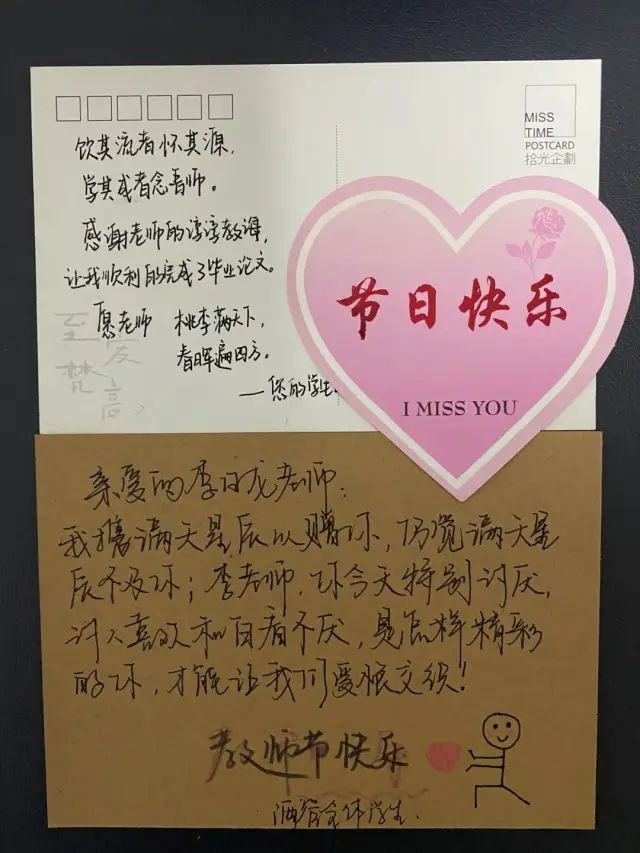 饮其流者怀其源，
学其成者念吾师。
感谢老师的谆谆教诲，
让我顺利的完成了毕业论文。
愿老师 桃李满天下，
春晖遍四方。
——您的学生
至爱
梵高
MISS
TIME
POSTCARD
拾光企劃
节日快乐
I MISS YOU
亲爱的李日龙老师：
我携满天星辰以赠你，仍觉满天星
辰不及你；李老师，你今天特别讨厌，
讨人喜欢和百看不厌，是怎样精彩
的你，才能让我们爱恨交织！
教师节快乐
酒管全体学生.